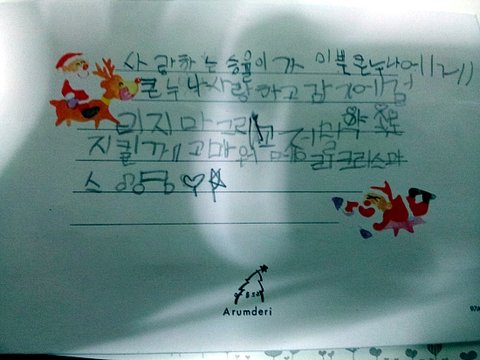 사랑하는 승율이가 이뿐큰누나에게
큰누나사랑하고감기에걸
리지마그리고 약속
지킬게고마워메리크리스마
스 ♡☆
Arumderi